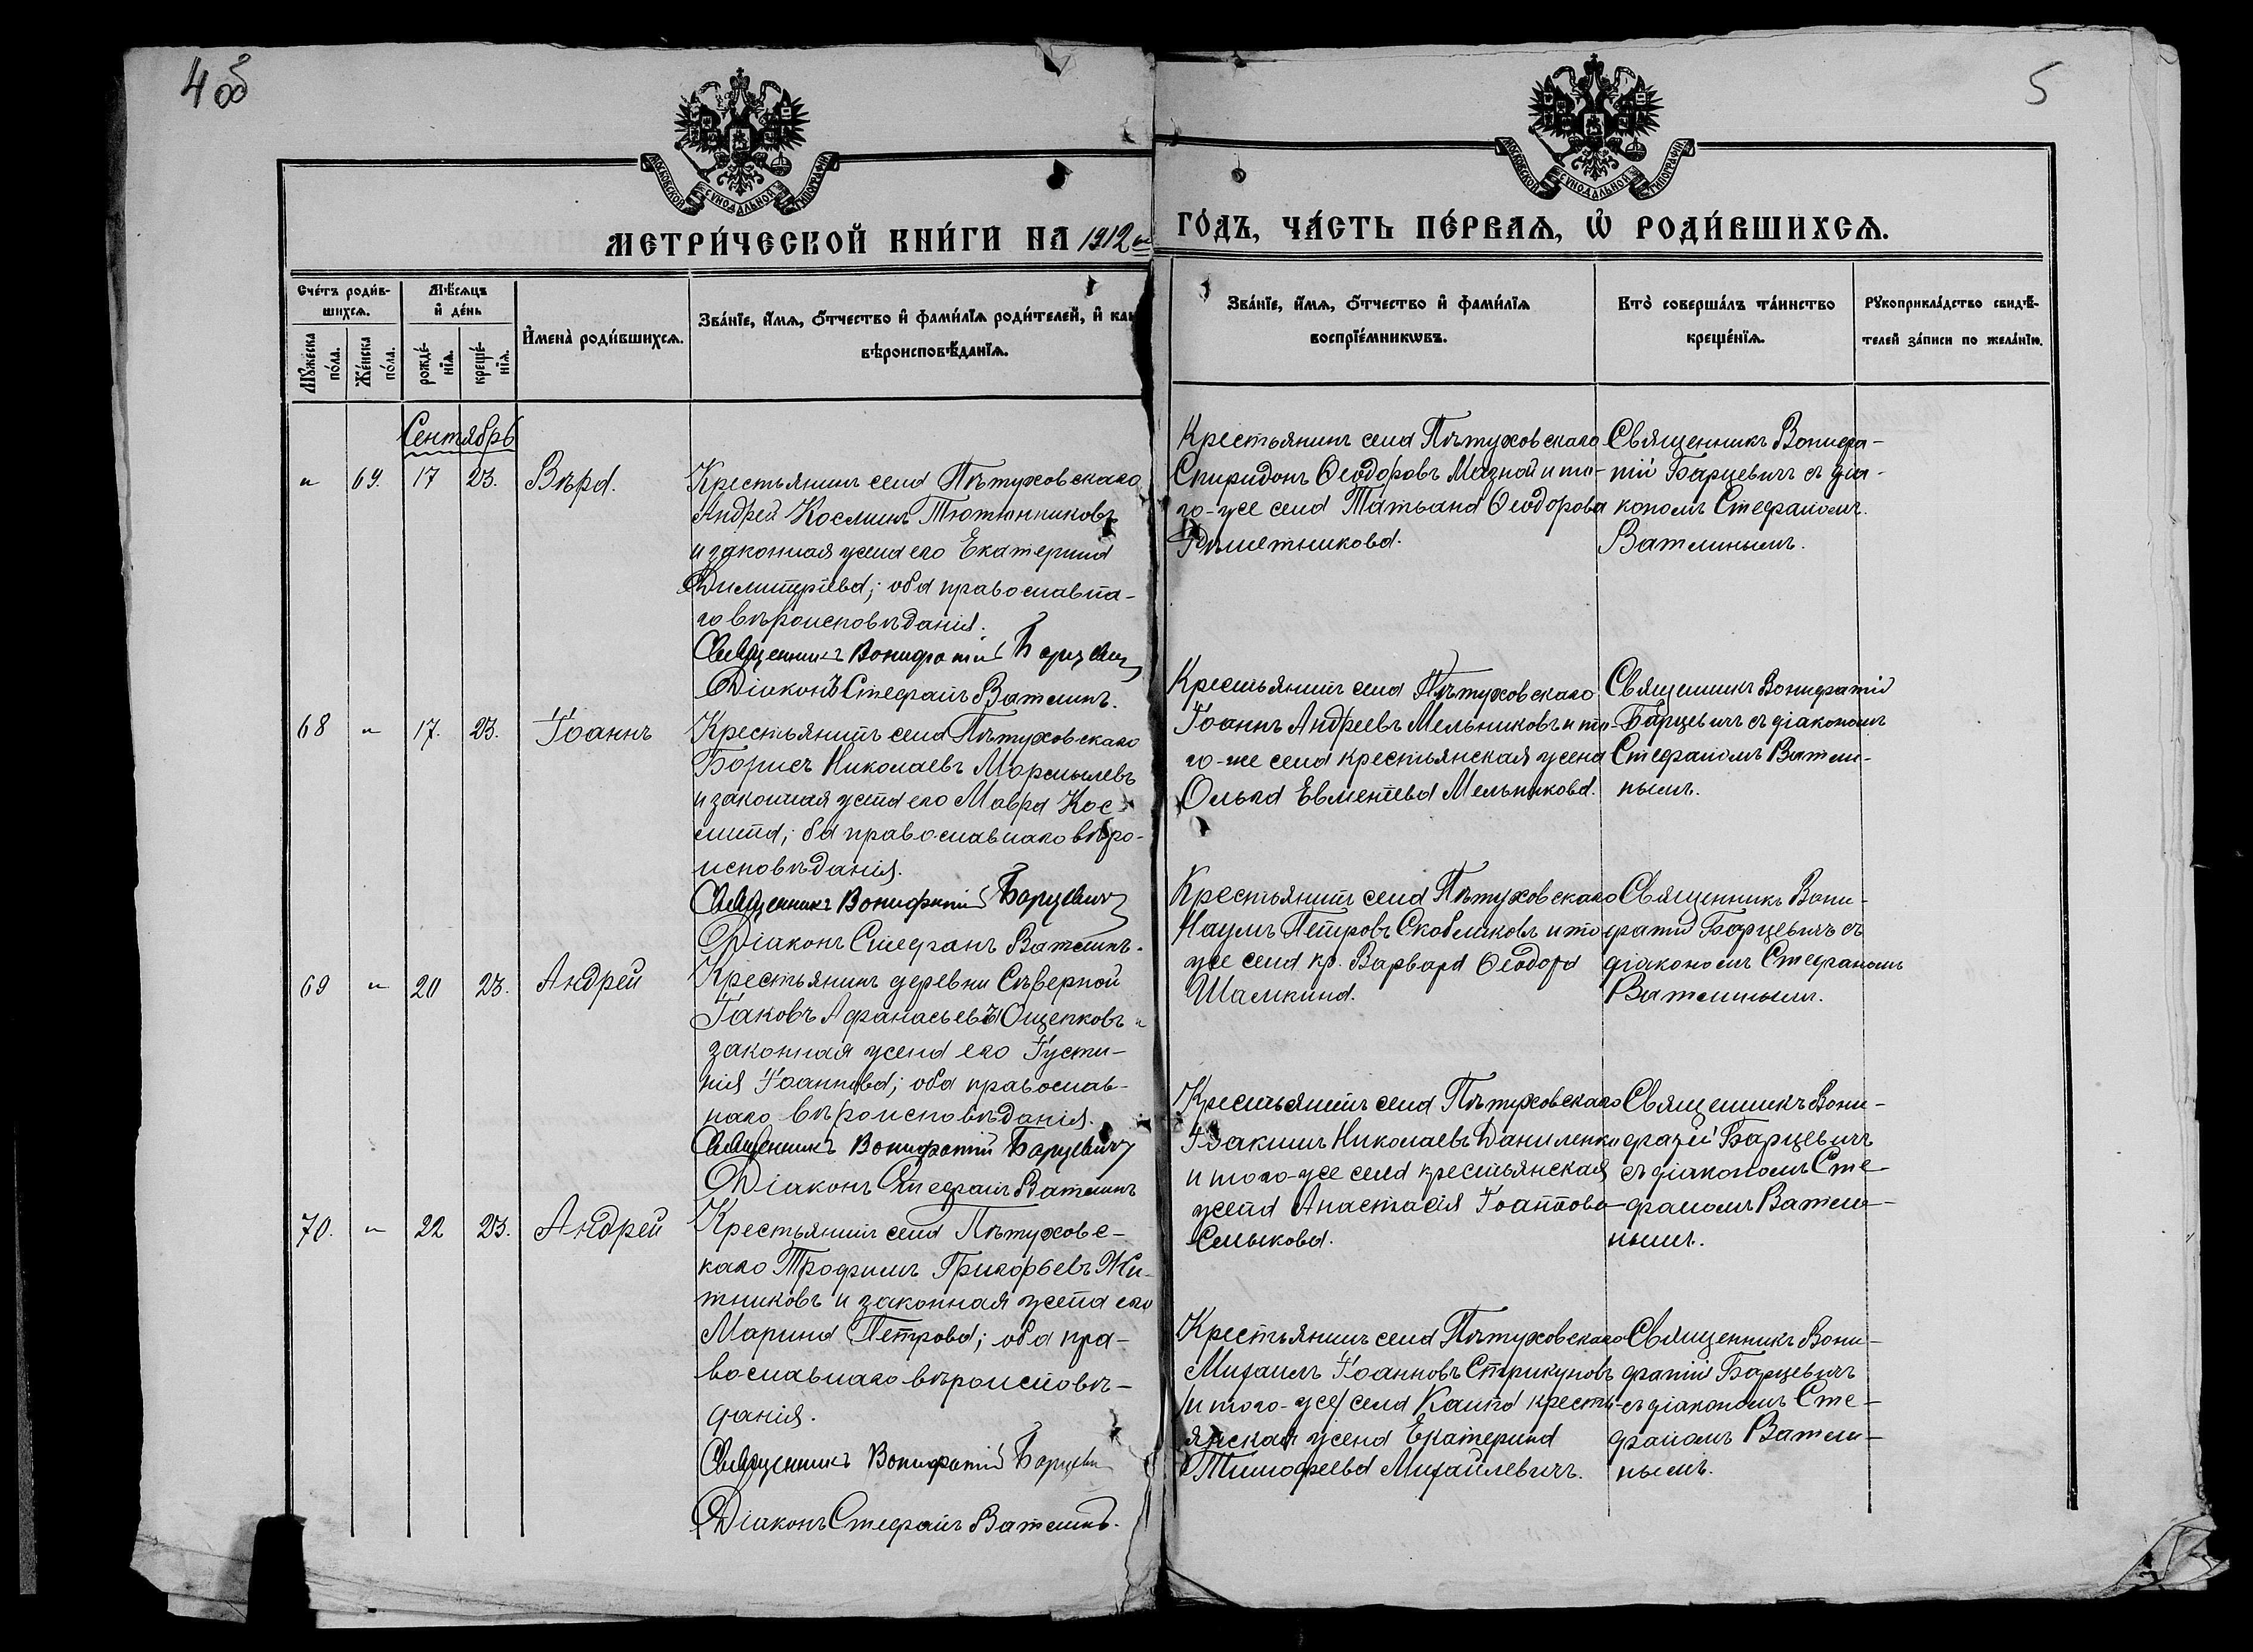 4 об
5
МОСКОВСКОЙ СѴНОДАЛЬНОЙ ТИПОГРАФІИ
МОСКОВСКОЙ СѴНОДАЛЬНОЙ ТИПОГРАФІИ
МЕТРИ́ЧЕСКОЙ КНИ́ГИ НА 1912 й
ГО́ДЪ, ЧА́СТЬ ПЕ́РВАѦ, Ѡ҆ РОДИ́ВШИХСѦ.
Сче́тъ роди́в-
шихсѧ.
Мѣ́сѧцъ
и҆ де́нь
Мꙋ́жеска
по́ла.
Же́нска
по́ла.
рожде́-
нїѧ.
креще́-
нїѧ.
И҆мена̀ роди́вшихсѧ.
Зва́нїе, и҆́мѧ, ѻ҆́тчество и҆ фами́лїѧ роди́телей, и҆ как
вѣроисповѣ́данїѧ.
Зва́нїе, и҆́мѧ, ѻ҆́тчество и҆ фами́лїѧ
воспрїе́мникѡвъ.
Кто̀ соверша́лъ та́инство
креще́нїѧ.
Рꙋкоприкла́дство свидѣ́-
телей за́писи по жела́нїю.
Сентябрь
" 69. 17 23. Вѣра.
Крестьянинъ села Пѣтуховскаго
Андрей Косминъ Тютюнниковъ
и законная жена его Екатерина
Димитріева; оба православна-
го вѣроисповѣданія.
Священникъ Вонифатій Барцевич
Діаконъ Стефанъ Ватлинъ.
Крестьянинъ села Пѣтуховскаго
Спиридонъ Ѳеодоровъ Мазной и то-
го-же села Татьана Ѳеодорова
Священникъ Вонифа-
тій Барцевичъ съ діа-
кономъ Стефаномъ
Ватлинымъ.
68 " 17. 23. Іоаннъ
Крестьянинъ села Пѣтуховскаго
Борисъ Николаевъ Мормылевъ
и законная жена его Мавра Кос-
мина; оба православнаго вѣро-
исповѣданія.
Священникъ Вонифатій Барцевич
Діаконъ Стефанъ Ватлинъ.
Крестьянинъ села Пѣтуховскаго
Іоаннъ Андреевъ Мельниковъ и то-
го-же села крестьянская жена
Ольга Евменіева Мельникова.
Священникъ Вонифатій
Барцевичъ съ діакономъ
Стефаномъ Ватли-
нымъ.
69 " 20 23. Андрей
Крестьянинъ деревни Сѣверной
Іаковъ Афанасьевъ Ощепковъ и
законная жена его Іусти-
нія Іоаннова; оба православ-
наго вѣроисповѣданія.
Священникъ Вонифатій Барцевич
Діаконъ Стефанъ Ватлинъ
Крестьянинъ села Пѣтуховскаго
Наумъ Петровъ Скобликовъ и то
же села кр. Варвара Ѳеодора
Шамкина.
Священникъ Вони-
фатій Барцевичъ съ
діакономъ Стефаномъ
Ватлинымъ.
70. " 22 23. Андрей
Крестьянинъ села Пѣтуховс-
каго Трофимъ Григорьевъ Жи-
тниковъ и законная жена его
Марина Петрова; оба пра-
вославнаго вѣроисповѣ-
данія.
Священникъ Вонифатій Барцеви
Діаконъ Стефанъ Ватлинъ.
Крестьянинъ села Пѣтуховскаго
Іоакимъ Николаевъ Даниленко
и того-же села крестьянская
жена Анастасія Іоаннова
Смыкова.
Священникъ Вони-
фатій Барцевичъ
съ діакономъ Сте-
фаномъ Ватли-
нымъ.
Крестьянинъ села Пѣтуховскаго
Михаилъ Іоанновъ Стрикуновъ
и того-же села Каипа кресть-
янская жена Екатерина
Тимофеева Михайлевичъ.
Священникъ Вони-
фатій Барцевичъ
съ діакономъ Сте-
фаномъ Ватли-
нымъ.